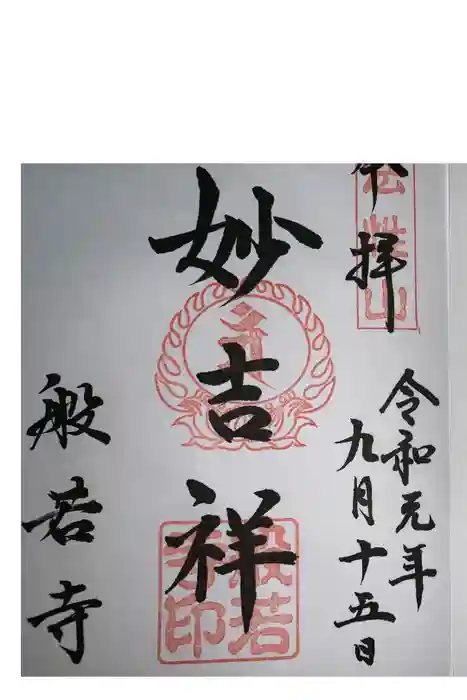 奉拝
法性山
令和元年
九月十五日
妙吉祥
般若寺印
般若寺